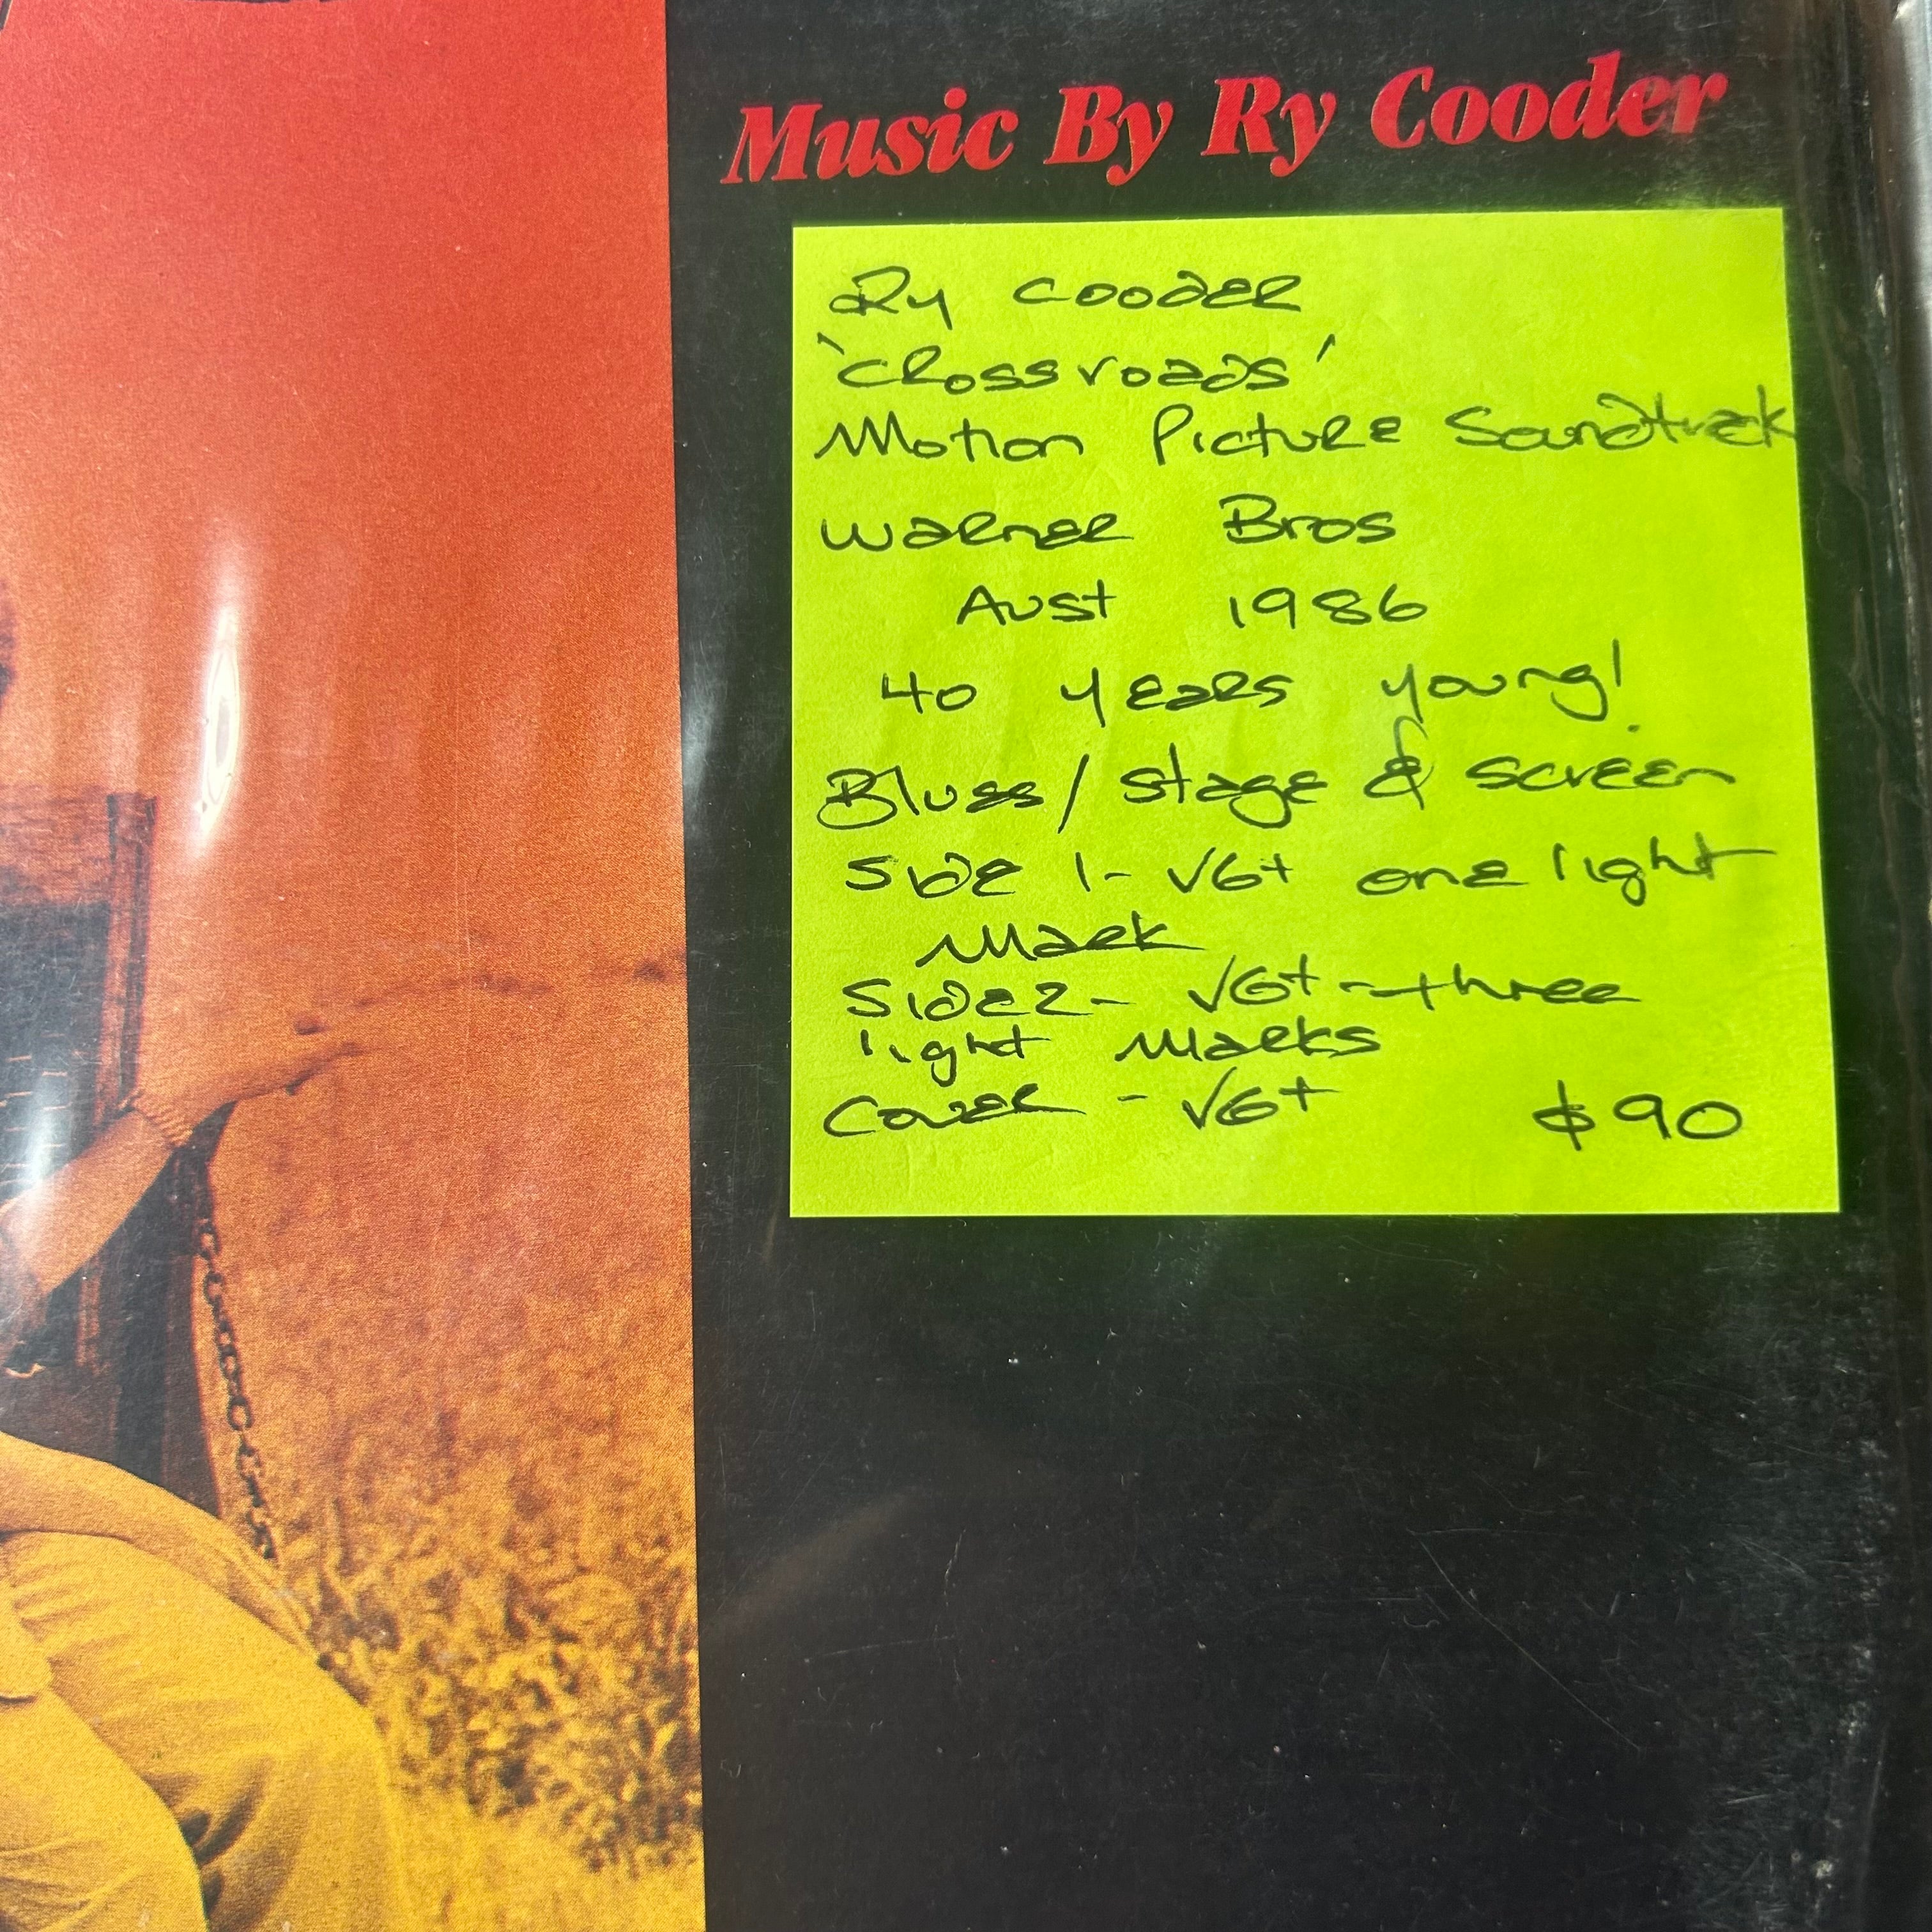 Music By Ry Cooder
Ry Cooder
'Crossroads'
Motion Picture Soundtrak
Warner Bros
Aust 1986
40 years young!
Blues/ Stage & Screen
Side 1- VG+ one light
Mark
Side 2- VG+ - three
light Marks
Cover - VG+ $90